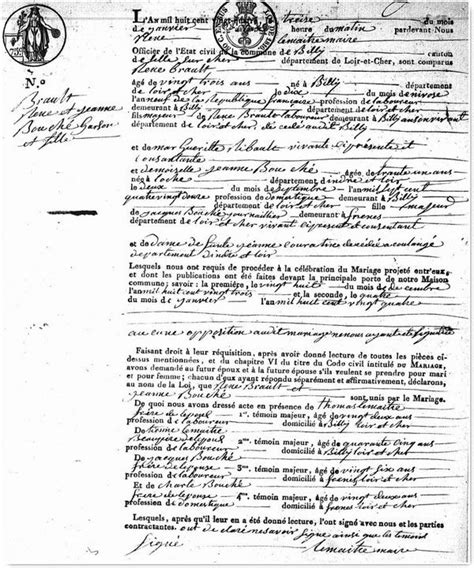 L'An mil huit cent vingt quatre treise du mois
de janvier heure du matin pardevant Nous
Rene lemaitre maire
Officier de l'Etat civil de la commune de Billy canton
de Selle sur cher département de Loir-et-Cher, sont comparus
Rene Brault
N.o
Brault
Rene et jeanne
Bouché Garson
et fille
âgé de vingt trois ans né à Billy
département de loir et cher le dix du mois de nivose
l'an neuf de la République française profession de laboureur
demeurant à Billy département de loir et cher
fils majeur de Rene Brault laboureur demeurant à Billy
département de loir et cher
et de mar Gueritte Ribault vivante ci présente et
consantante
et demoizelle jeanne Bouché âgée de trante un ans
née à loche département indre et loir
le deux du mois de septembre l'an mil sept cent
quatre vingt douze profession de domestique demeurant à Billy
département de loir et cher fille majeur
de jacques Bouché journaillier demeurant à frenes
département de loir et cher vivant ci présent et consentant
et de dame de
département d'indre et loir
Lesquels nous ont requis de procéder à la célébration du Mariage projeté entr'eux,
et dont les publications ont été faites devant la principale porte de notre Maison
commune; savoir: la première, le vingt huit du mois de de cembre
l'an mil huit cent vingt trois et la seconde, le quatre
du mois de janvier l'an mil huit cent vingt quatre
au cune opposition audit mariage ne nous ayant été signifiée
Faisant droit à leur réquisition, après avoir donné lecture de toutes les pièces ci-
dessus mentionnées, et du chapitre VI du titre du Code civil intitulé du MARIAGE,
avons demandé au futur époux et à la future épouse s'ils veulent se prendre pour mari
et pour femme; chacun d'eux ayant répondu séparément et affirmativement, déclarons,
au nom de la Loi, que Rene Brault et
jeanne Bouché sont unis par le Mariage.
De quoi nous avons dressé acte en présence de thomas lemaitre
frère de lepoux 1.er témoin majeur, âgé de vingt deux ans
profession de laboureur domicilié à Billy loir et cher
De lemaitre
Beaupere de lepoux 2.me témoin majeur, âgé de quarante cinq ans
profession de laboureur domicilié à Billy loir et cher
De jacques Bouché
frère de lepouse 3.me témoin majeur, âgé de vingt six ans
profession de laboureur domicilié à frenes loir et cher
Et de charle Bouché
frère de lepouse 4.me témoin majeur, âgé de vingt deux ans
profession de domestique domicilié à frenes loir et cher
Lesquels, après qu'il leur en a été donné lecture, l'ont signé avec nous et les parties
contractantes. ont de clare ne savoir signe ainsi que les temoins
signé lemaitre maire